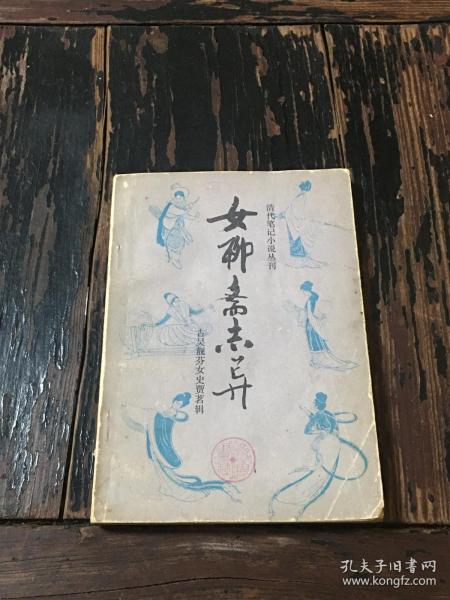 清代笔记小说丛刊
女聊斋志异
古吴靓芬女史贾茗辑
孔夫子旧书网
www.kongfz.com